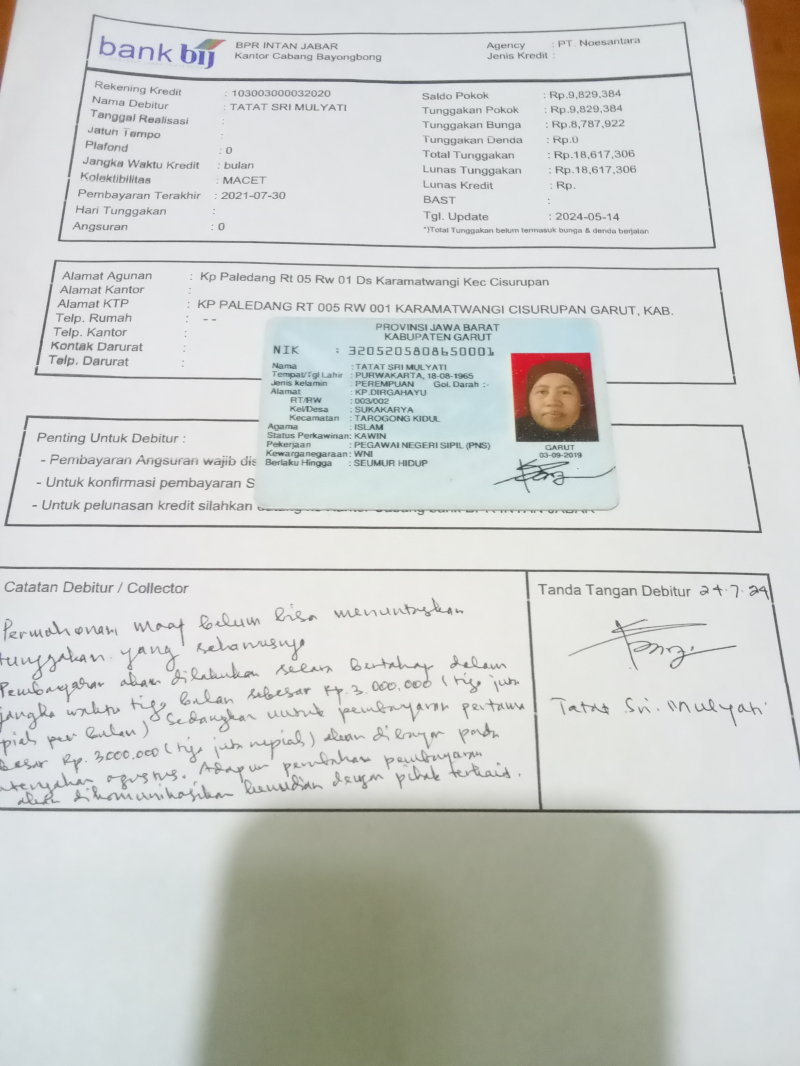 bank bij
BPR INTAN JABAR
Kantor Cabang Bayongbong
Agency : PT. Noesantara
Jenis Kredit :
Rekening Kredit : 103003000032020
Nama Debitur : TATAT SRI MULYATI
Tanggal Realisasi :
Jatuh Tempo :
Plafond : 0
Jangka Waktu Kredit : bulan
Kolektibilitas : MACET
Pembayaran Terakhir : 2021-07-30
Hari Tunggakan :
Angsuran : 0
Saldo Pokok : Rp.9,829,384
Tunggakan Pokok : Rp.9,829,384
Tunggakan Bunga : Rp.8,787,922
Tunggakan Denda : Rp.0
Total Tunggakan : Rp.18,617,306
Lunas Tunggakan : Rp.18,617,306
Lunas Kredit : Rp.
BAST :
Tgl. Update : 2024-05-14
*)Total Tunggakan belum termasuk bunga & denda berjalan
Alamat Agunan : Kp Paledang Rt 05 Rw 01 Ds Karamatwangi Kec Cisurupan
Alamat Kantor :
Alamat KTP : KP PALEDANG RT 005 RW 001 KARAMATWANGI CISURUPAN GARUT, KAB.
Telp. Rumah : --
Telp. Kantor :
Kontak Darurat :
Telp. Darurat :
PROVINSI JAWA BARAT
KABUPATEN GARUT
NIK : 3205205808650001
Nama : TATAT SRI MULYATI
Tempat/Tgl Lahir : PURWAKARTA, 18-08-1965
Jenis kelamin : PEREMPUAN Gol. Darah :-
Alamat : KP.DIRGAHAYU
RT/RW : 003/002
Kel/Desa : SUKAKARYA
Kecamatan : TAROGONG KIDUL
Agama : ISLAM
Status Perkawinan: KAWIN
Pekerjaan : PEGAWAI NEGERI SIPIL (PNS)
Kewarganegaraan: WNI
Berlaku Hingga : SEUMUR HIDUP
GARUT
03-09-2019
Penting Untuk Debitur :
- Pembayaran Angsuran wajib dis
- Untuk konfirmasi pembayaran S
- Untuk pelunasan kredit silahkan
Catatan Debitur / Collector
Permohonan maaf belum bisa menuntaskan
tunggakan yang seharusnya
Pembayaran akan dilakukan secara bertahap dalam
jangka waktu tiga bulan sebesar Rp. 3.000.000 (tiga juta
piah per bulan) Sedangkan untuk pembayaran pertama
besar Rp. 3000.000 (tiga juta rupiah) akan dibayar pada
tengahan agustus. Adapun perubahan pembayaran
akan dikomunikasikan kemudian dengan pihak terkait.
Tanda Tangan Debitur 24.7.24
Tatat Sri. Mulyati